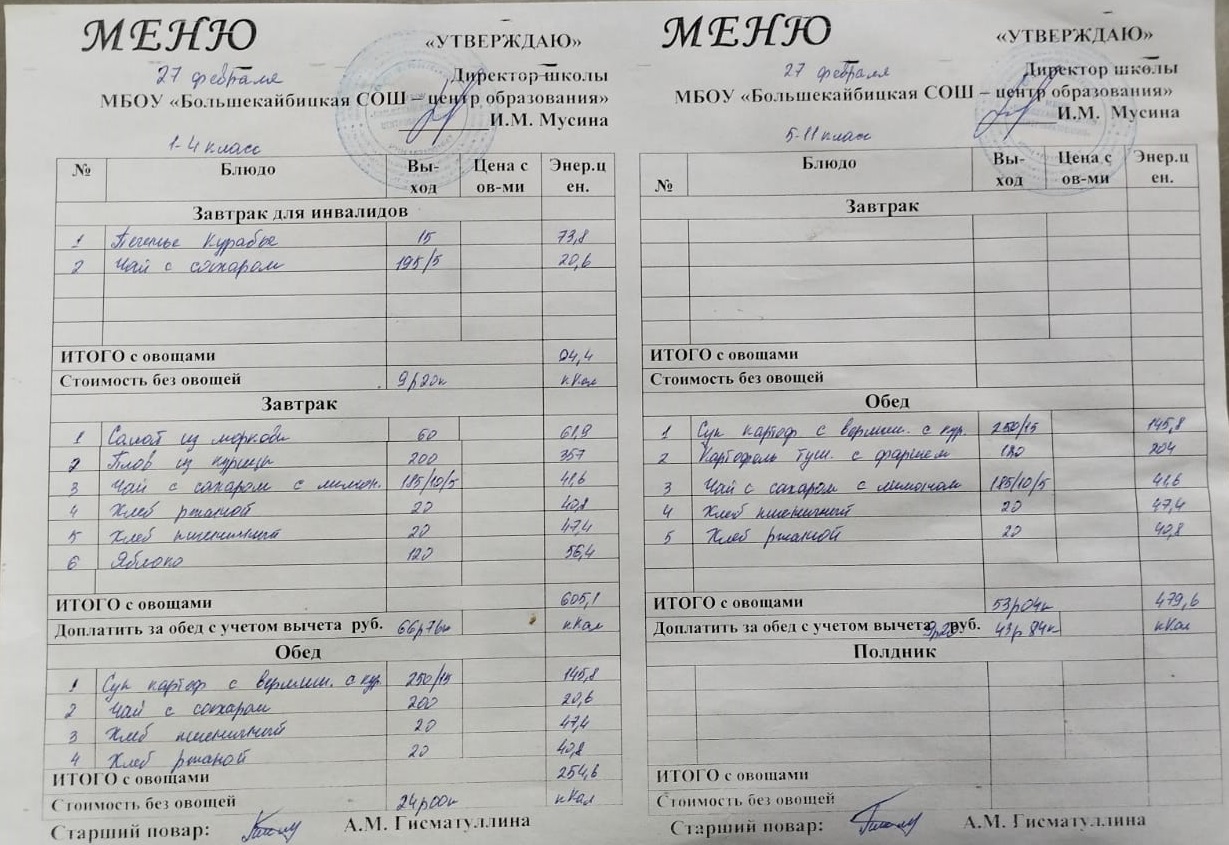 МЕНЮ
«УТВЕРЖДАЮ»
27 февраля
Директор школы
МБОУ «Большекайбицкая СОШ – центр образования»
И.М. Мусина
1-4 класс
№ Блюдо Вы-ход Цена с ов-ми Энер.ц ен.
Завтрак для инвалидов
1 Печенье Курабье 15 73,8
2 Чай с сахаром 195/5 20,6
ИТОГО с овощами 94,4
Стоимость без овощей 9р20к кКал
Завтрак
1 Салат из моркови 60 61,9
2 Плов из курицы 200 357
3 Чай с сахаром с лимон. 185/10/5 41,6
4 Хлеб ржаной 20 40,8
5 Хлеб пшеничный 20 47,4
6 Яблоко 120 56,4
ИТОГО с овощами 605,1
Доплатить за обед с учетом вычета руб. 66р76к кКал
Обед
1 Суп картоф с вермиш. с кур 250/15 145,8
2 Чай с сахаром 200 20,6
3 Хлеб пшеничный 20 47,4
4 Хлеб ржаной 20 40,8
ИТОГО с овощами 254,6
Стоимость без овощей 24р00к кКал
Старший повар: А.М. Гисматуллина
МЕНЮ
«УТВЕРЖДАЮ»
27 февраля
Директор школы
МБОУ «Большекайбицкая СОШ – центр образования»
И.М. Мусина
5-11 класс
№ Блюдо Вы-ход Цена с ов-ми Энер.ц ен.
Завтрак
ИТОГО с овощами
Стоимость без овощей
Обед
1 Суп картоф с вермиш. с кур. 250/15 145,8
2 Картофель туш. с фаршем 180 204
3 Чай с сахаром с лимоном 185/10/5 41,6
4 Хлеб пшеничный 20 47,4
5 Хлеб ржаной 20 40,8
ИТОГО с овощами 53р04к 479,6
Доплатить за обед с учетом вычета 9р20 руб. 43р84к кКал
Полдник
ИТОГО с овощами
Стоимость без овощей
Старший повар: А.М. Гисматуллина